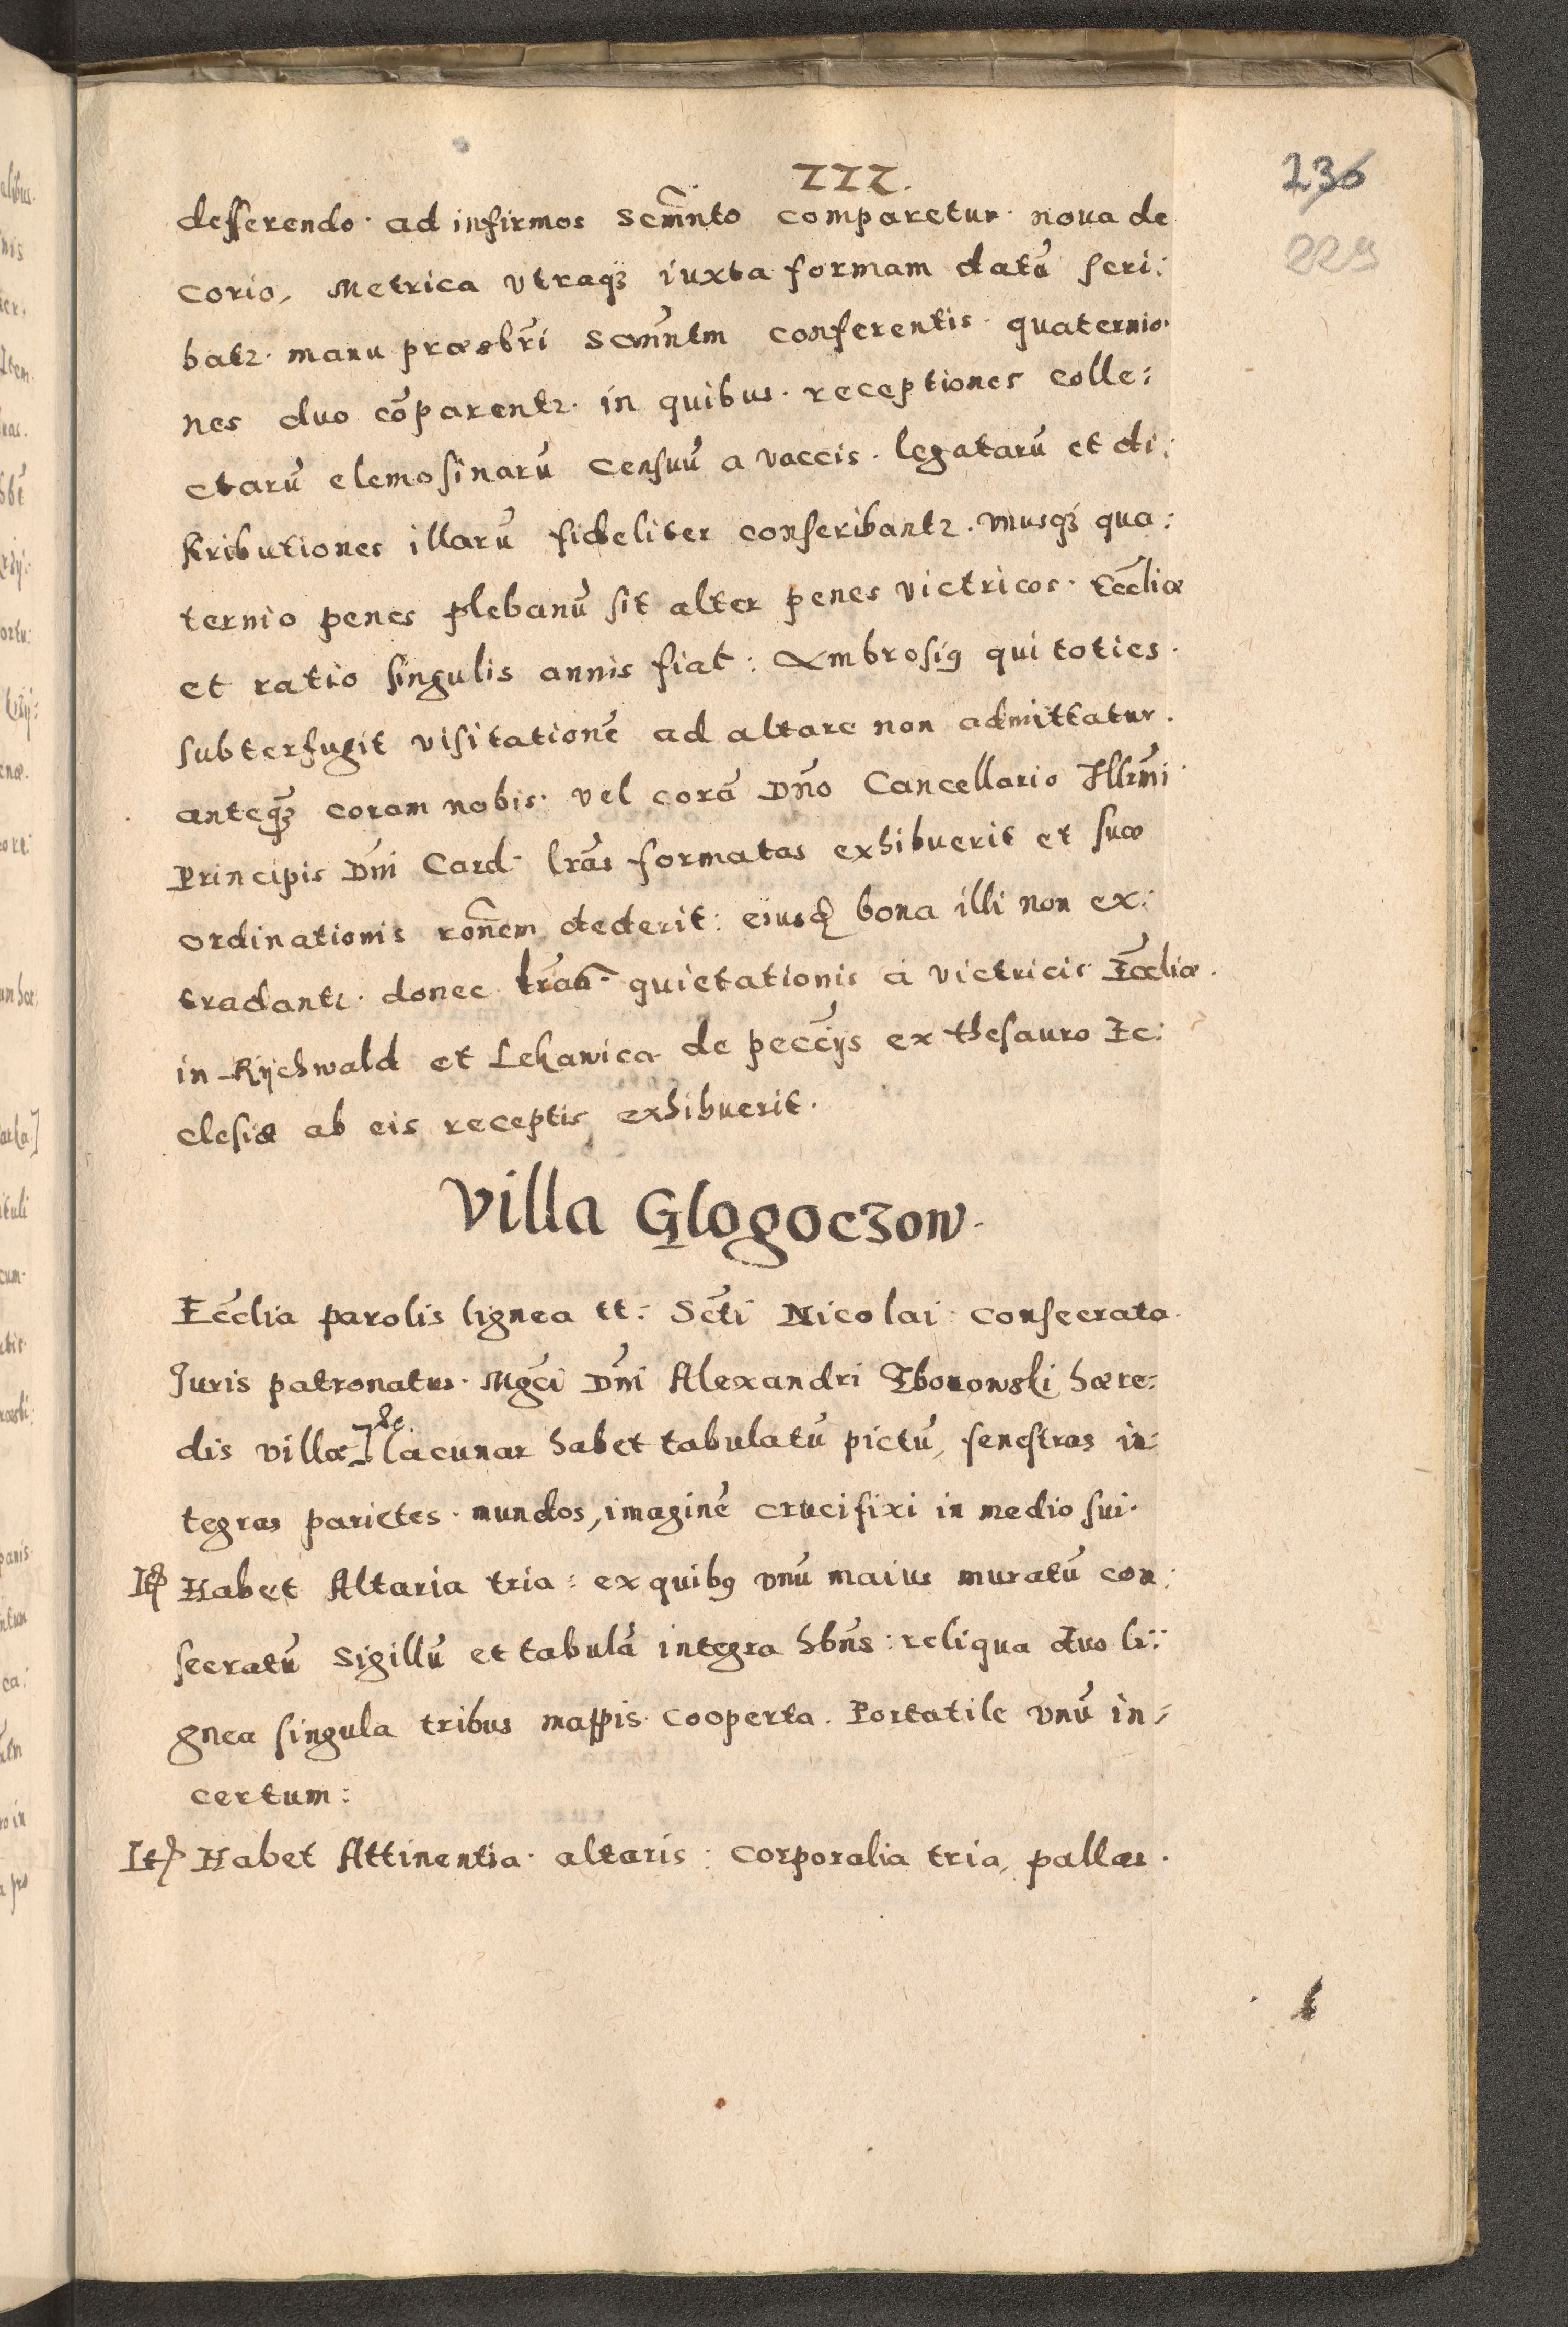 III.
136
229
defferendo ad infirmos Scm̃nto comparetur noua de
corio, Metrica vtraqꝫ iuxta formam datã scri:
batz. manu præsbr̃i Scm̃ntm conferentis quaternio
nes duo cõparentz. in quibus receptiones colle:
ctarũ elemosinarũ Censuũ a vaccis. legatarũ et di:
stributiones illarũ fideliter conscribantz. vnusqꝫ qua:
ternio penes plebanũ sit alter penes victricos. Eccl̃iæ
et ratio singulis annis fiat: Ambrosiꝯ qui toties
subterfugit visitationẽ ad altare non admittatur.
anteqꝫ coram nobis vel corã Dño Cancellario Illrm̃i
Principis Dñi Card. lrãs formatas exhibuerit et suæ
ordinationis rõnem dederit: eiusqꝫ bona illi non ex:
tradantz. donec lrãs quietationis a victricis Eccl̃iæ.
in Rychwald et Lekawica de pecc̃ijs ex thesauro Ec:
clesiæ ab eis receptis exhibuerit.
Villa Glogoczow.
Ecc̃lia parolis lignea tt: Sc̃ti Nicolai consecrata
Juris patronatus Mgc̃i Dñi Alexandri Zborowski hære:
&c
dis villæ] lacunar habet tabulatũ pictũ, fenestras in:
tegras parietes mundos, imaginẽ crucifixi in medio sui.
Itꝫ Habet Altaria tria: ex quibꝯ vnũ maius muratũ con:
secratũ Sigillũ et tabulã integra hbñs: reliqua duo li:
gnea singula tribus mappis cooperta. Portatile vnũ in:
certum:
Itꝫ Habet Attinentia altaris: Corporalia tria, pallas.